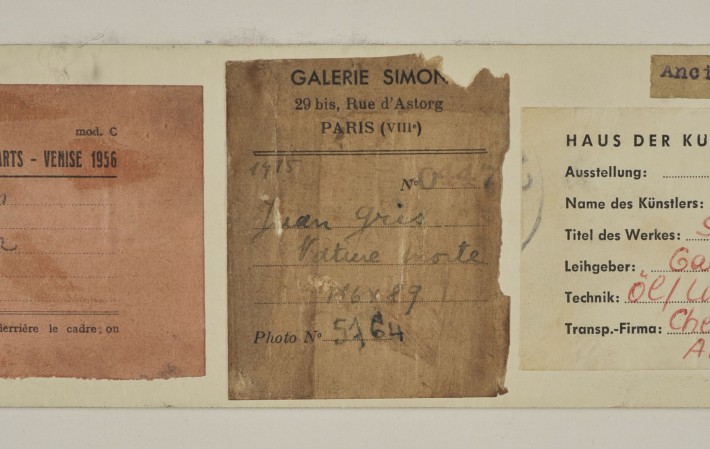 mod. C
ARTS - VENISE 1956
derrière le cadre; ou
GALERIE SIMON
29 bis, Rue d'Astorg
PARIS (VIIIᵉ)
1915
Nº
Juan Gris
Nature morte
116x89
Photo Nº 5164
Anci
HAUS DER KU
Ausstellung:
Name des Künstlers:
Titel des Werkes: S
Leihgeber: Ga
Technik: Öl/
Transp.-Firma: Che
A